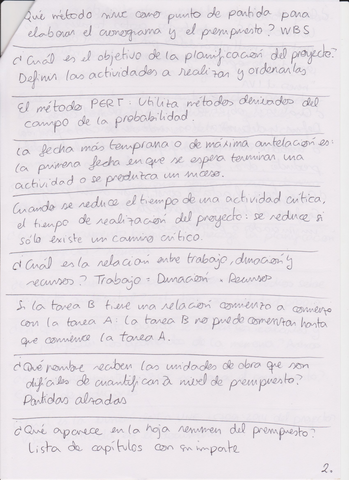 ¿Qué método sirve como punto de partida para
elaborar el cronograma y el presupuesto? WBS
¿Cuál es el objetivo de la planificación del proyecto?
Definir las actividades a realizar y ordenarlas
El método PERT: Utiliza métodos derivados del
campo de la probabilidad.
La fecha más temprana o de máxima antelación es:
la primera fecha en que se espera terminar una
actividad o se produzca un suceso.
Cuando se reduce el tiempo de una actividad crítica,
el tiempo de realización del proyecto: se reduce si
sólo existe un camino crítico.
¿Cuál es la relación entre trabajo, duración y
recursos? Trabajo = Duración . Recursos
Si la tarea B tiene una relación comienzo a comienzo
con la tarea A: La tarea B no puede comenzar hasta
que comience la tarea A.
¿Qué nombre reciben las unidades de obra que son
difíciles de cuantificar a nivel de presupuesto?
Partidas alzadas
¿Qué aparece en la hoja resumen del presupuesto?
Lista de capítulos con su importe
2.